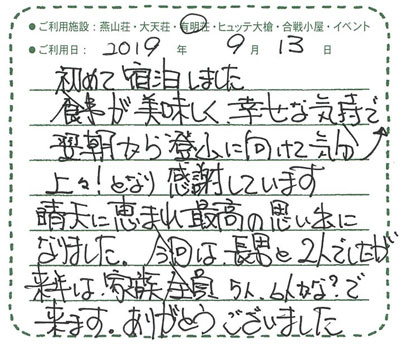 ●ご利用施設：燕山荘・大天荘・有明荘・ヒュッテ大槍・合戦小屋・イベント
●ご利用日：2019年 9月 13日
初めて宿泊しました
食事が美味しく、幸せな気持で
翌朝から登山に向けて気分
上々！となり感謝しています
晴天に恵まれ最高の思い出に
なりました。今回は、長男と2人でしたが
来年は、家族全員 5人、6人かな？で
来ます。ありがとうございました